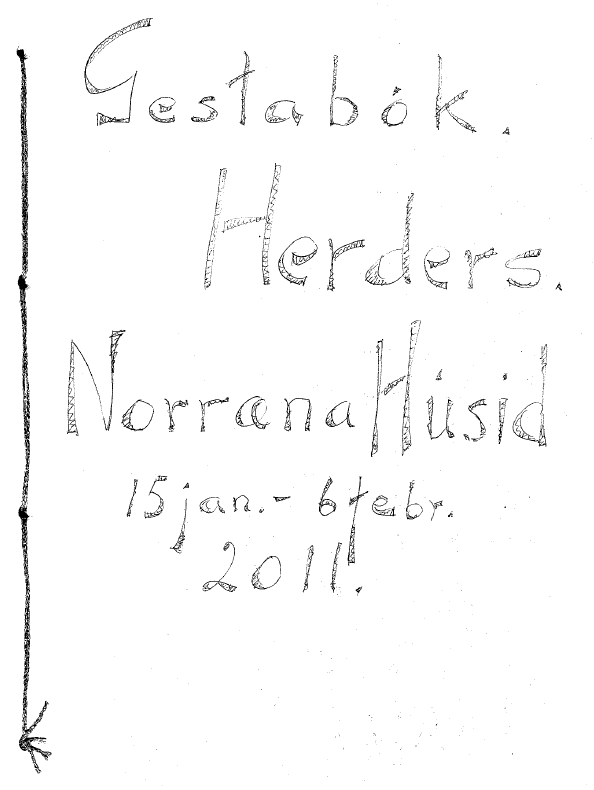 Gestabók.
Herders.
Norræna Húsid
15 jan. - 6 febr.
2011.